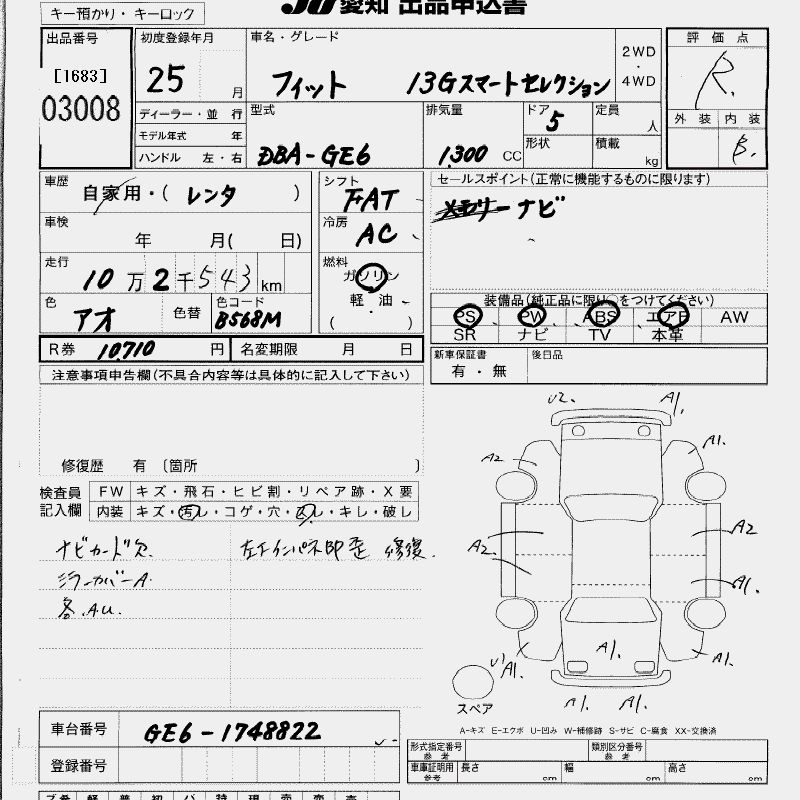 キー預かり・キーロック
JU 愛知 出品申込書
出品番号
[1683]
03008
初度登録年月
25 月
ディーラー・並 行
モデル年式 年
ハンドル 左・右
車名・グレード
フィット 13Gスマートセレクション
2WD
・
4WD
型式
DBA-GE6
排気量
1,300 CC
ドア 5
形状
定員 人
積載 kg
評価点
R.
外装 内装
B.
車歴
自家用・( レンタ )
車検
年 月( 日)
走行
10万2千543km
色
アオ
色替
色コード
B568M
シフト
FAT
冷房
AC
燃料
ガソリン
軽・油
( )
R券 10710 円
名変期限 月 日
セールスポイント(正常に機能するものに限ります)
ナビ
装備品(純正品に限り○をつけてください)
PS PW ABS エアB AW
SR ナビ TV 本革
新車保証書
有・無
後日品
注意事項申告欄(不具合内容等は具体的に記入して下さい)
修復歴 有 〔箇所 〕
検査員
記入欄
FW キズ・飛石・ヒビ割・リペア跡・X要
内装 キズ・汚レ・コゲ・穴・凹・キレ・破し
ナビカード欠
ミラーカバーA
各.A.U.
左下インパネ部 歪 修復.
U2. A1.
A2 A1.
A2. A2
A1.
A1.
A1. A1.
A1. A1.
スペア
A-キズ E-エクボ U-凹み W-補修跡 S-サビ C-腐食 XX-交換済
車台番号 GE6-1748822
登録番号
形式指定番号
参考
類別区分番号
参考
車庫証明用
参考
長さ cm 幅 cm 高さ cm